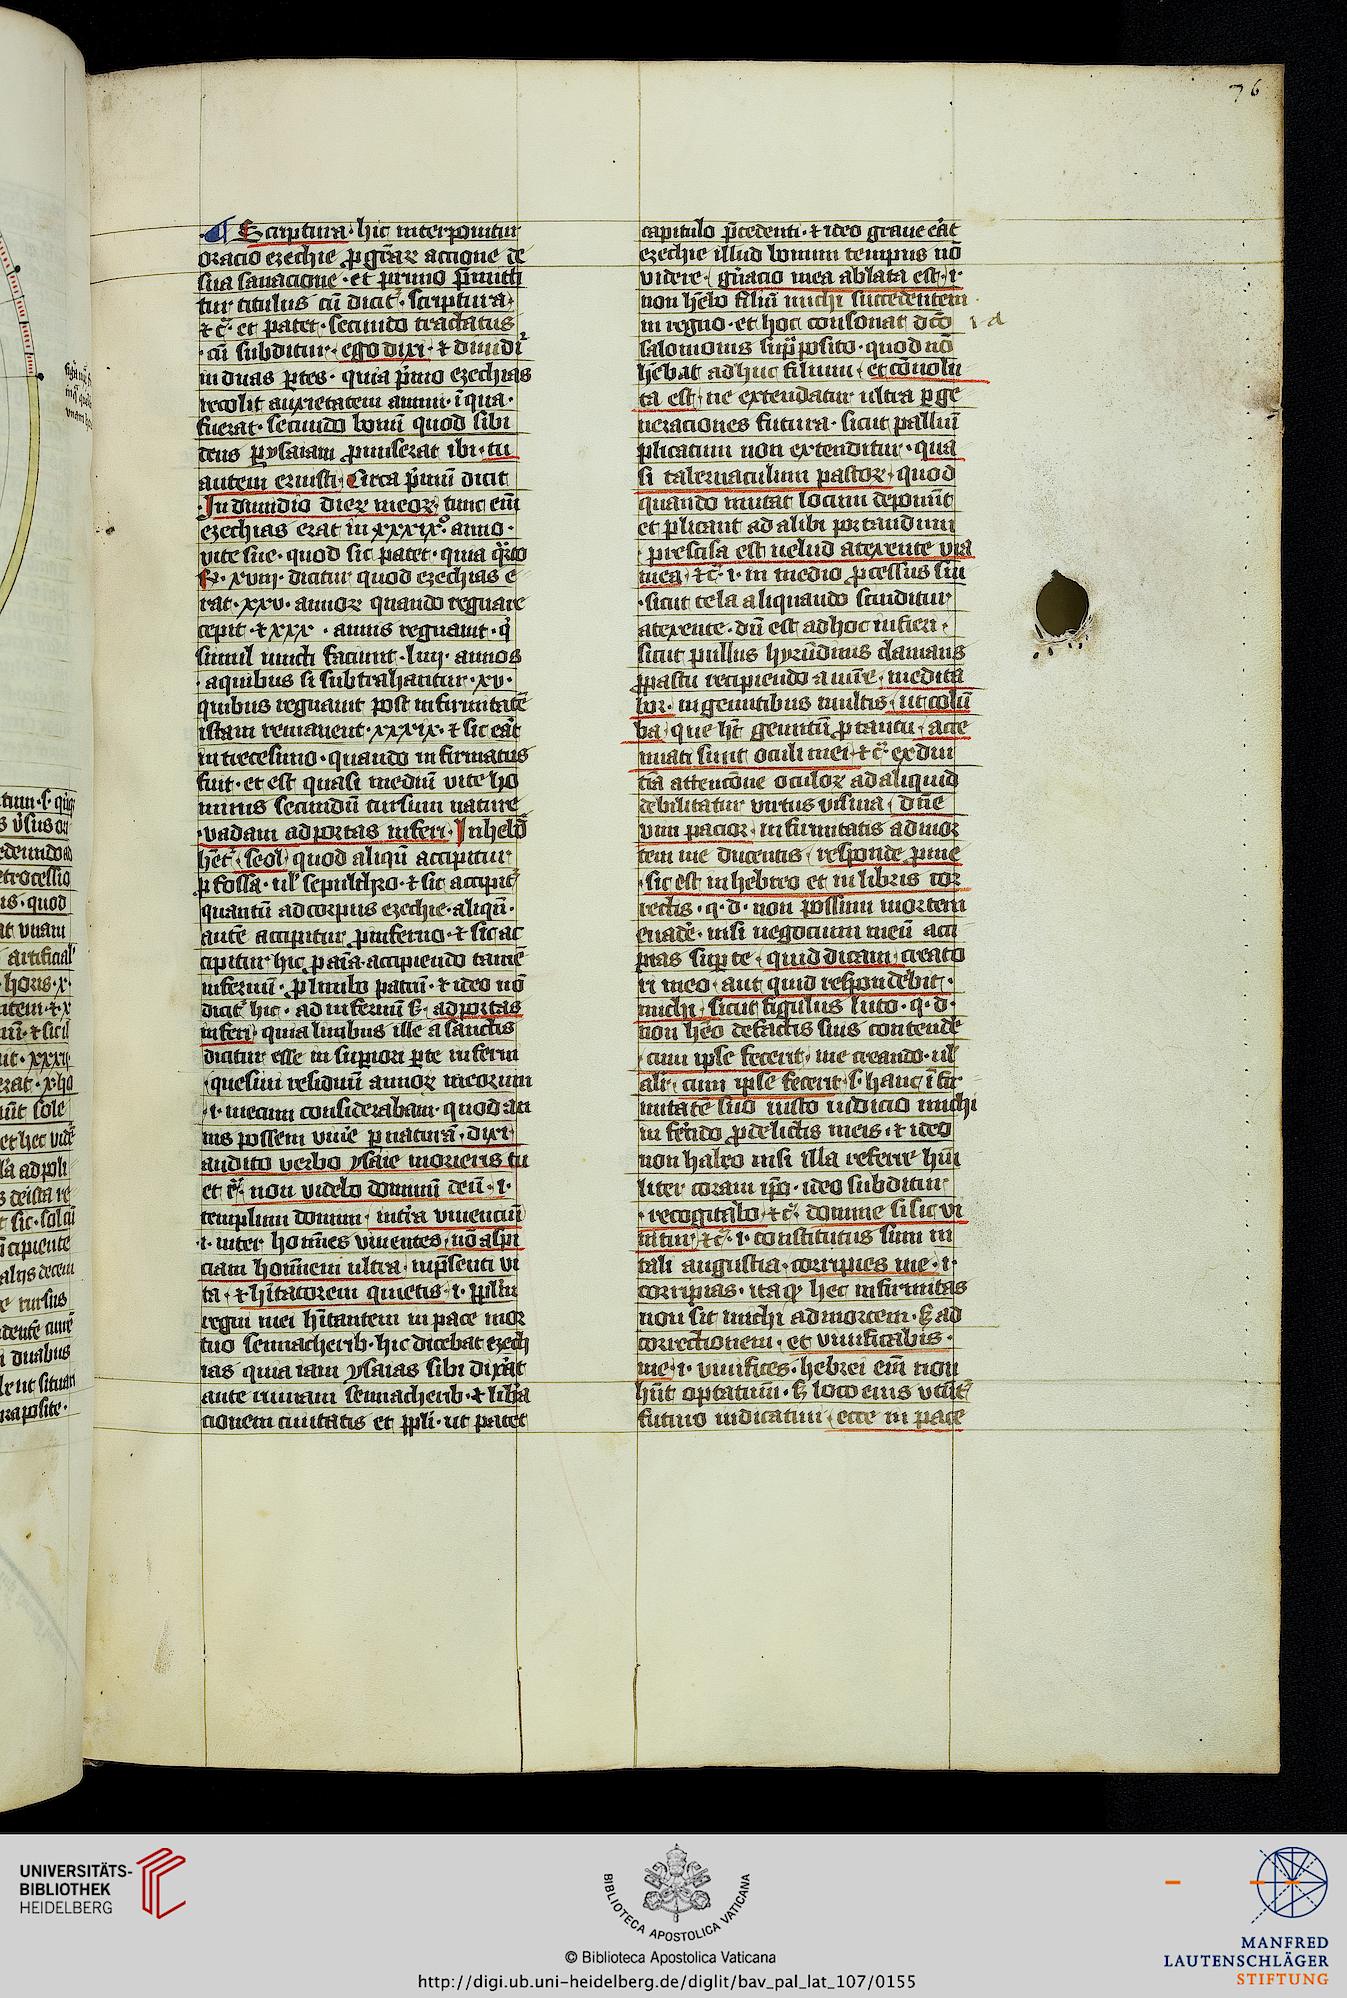 76
¶ Scriptura · hic interponitur
oracio ezechie ꝓ gr̄aꝝ accione de
sua sanacione · et primo p̄mitti
tur titulus cū dicit᷑ · scriptura ·
⁊ c̄ · et patet · secundo tractatus
· cū subditur · ego dixi · ⁊ diuidit᷑
in duas ꝑtes · quia p̄mo ezechias
recolit anxietatem animi · ī qua ·
fuerat · secundo bonū quod sibi
deus ꝑ ysaiam ꝓmiserat ibi · tu
autem eruisti · Circa p̄mū dicit
· In dimidio dieꝝ meoꝝ · tunc em̄
ezechias erat in xxxixº · anno ·
vite sue · quod sic patet · quia q̄rto
R̄ · xviii · dicitur quod ezechias e
rat · xxv · annoꝝ quando regnare
cepit · ⁊ xxx · annis regnauit · q̄
simul iuncti faciunt · liiii · annos
· a quibus si subtrahantur · xv ·
quibus regnauit post infirmitatē
istam remanent · xxxix · ⁊ sic ēat
in tricesimo · quando infirmatus
fuit · et est quasi mediū vite ho
minis secundū cursum nature
· vadam ad portas inferi · In hebō
hēt᷑ · seol · quod aliqn̄ accipitur
ꝓ fossa · ul̄ sepulchro · ⁊ sic accipit᷑
quantū ad corpus ezechie · aliqn̄ ·
autē accipitur ꝓ inferno · ⁊ sic ac
cipitur hic ꝓ aīa · accipiendo tamē
infernū · ꝓ limbo patrū · ⁊ ideo nō
dicit᷑ hic · ad infernū sꝫ · ad portas
inferi · quia limbus ille a sanctis
dicitur esse in supiori ꝑte inferni
· quesiui residuū annoꝝ meorum
· i · mecum considerabam · quod an
nis possem viuē ꝑ naturā · dixi ·
audito verbo ysaie morieris tu
et c̄ · non videbo dominū deū · i ·
templum domini · in tr̄a viuenciū
· i · inter hoīes viuentes · nō aspi
ciam hominem ultra · in p̄senti vi
ta · ⁊ hītatorem quietis · i · ppl̄m
regni mei hītantem in pace mor
tuo sennacherib · hic dicebat ezech
ias quia iam ysaias sibi dixāt
ante ruinam sennacherib · ⁊ lib̄a
cionem ciuitatis et ppl̄i · ut patet
capitulo p̄cedenti · ⁊ ideo graue ēat
ezechie illud bonum tempus nō
videre · gn̄acio mea ablata est · i ·
non hēbo filiū michi succedentem ·
in regno · et hoc consonat dcō
salomonis sup̄posito · quod nō
hēbat adhuc filium · et cōuolu
ta est · ne extendatur ultra ꝑ ge
neraciones futura · sicut palliū
plicatum non extenditur · qua
si tabernaculum pastoꝝ · quod
quando mutat locum deponit
et plicant ad alibi portandum
· prescisa est uelud a texente vita
mea · ⁊ c̄ · i · in medio ꝓcessus sui
· sicut tela aliquando scinditur
a texente · dū est adhoc in fieri ·
sicut pullus hyrūdinis clamans
ꝓ pastu recipiendo a mr̄e · medita
bor · in gemitibus multis · ut colū
ba · que ht̄ gemitū ꝓ cantu · atte
nuati sunt oculi mei · ⁊ c̄ · ex diu
tīa attencōne oculoꝝ ad aliquid
debilitatur virtus visiua · dn̄e
vim pacior · infirmitatis ad mor
tem me ducentis · responde ꝓ me
· sic est in hebreo et in libris cor
rectis · q · d · non possum mortem
euadē · nisi negocium meū acci
pias sup te · quid dicam · creato
ri meo · aut quid respondēbit ·
michi · sicut figulus luto · q · d ·
non hēo de factis suis contendē
· cum ipse fecerit · me creando · ul̄
alr̄ · cum ipse fecerit · s · hanc īfir
mitatē suo iusto iudicio michi
in ferēdo ꝓ delictis meis · ⁊ ideo
non habeo nisi illa referre hūi
liter coram ip̄o · ideo subditur
· recogitabo · ⁊ c̄ · domine si sic vi
uitur · ⁊ c̄ · i · constitutus sum in
tali angustia · corripies me · i ·
corripias · itaqꝫ hec infirmitas
non sit michi ad mortem · sꝫ ad
correctionem · et viuificabis ·
me · i · viuifices · hebrei em̄ non
hn̄t optatiuum · sꝫ loco eius vtūt᷑
futuro indicatiui · ecce in pace
UNIVERSITÄTS-
BIBLIOTHEK
HEIDELBERG
BIBLIOTECA APOSTOLICA VATICANA
© Biblioteca Apostolica Vaticana
http://digi.ub.uni-heidelberg.de/diglit/bav_pal_lat_107/0155
MANFRED
LAUTENSCHLÄGER
STIFTUNG